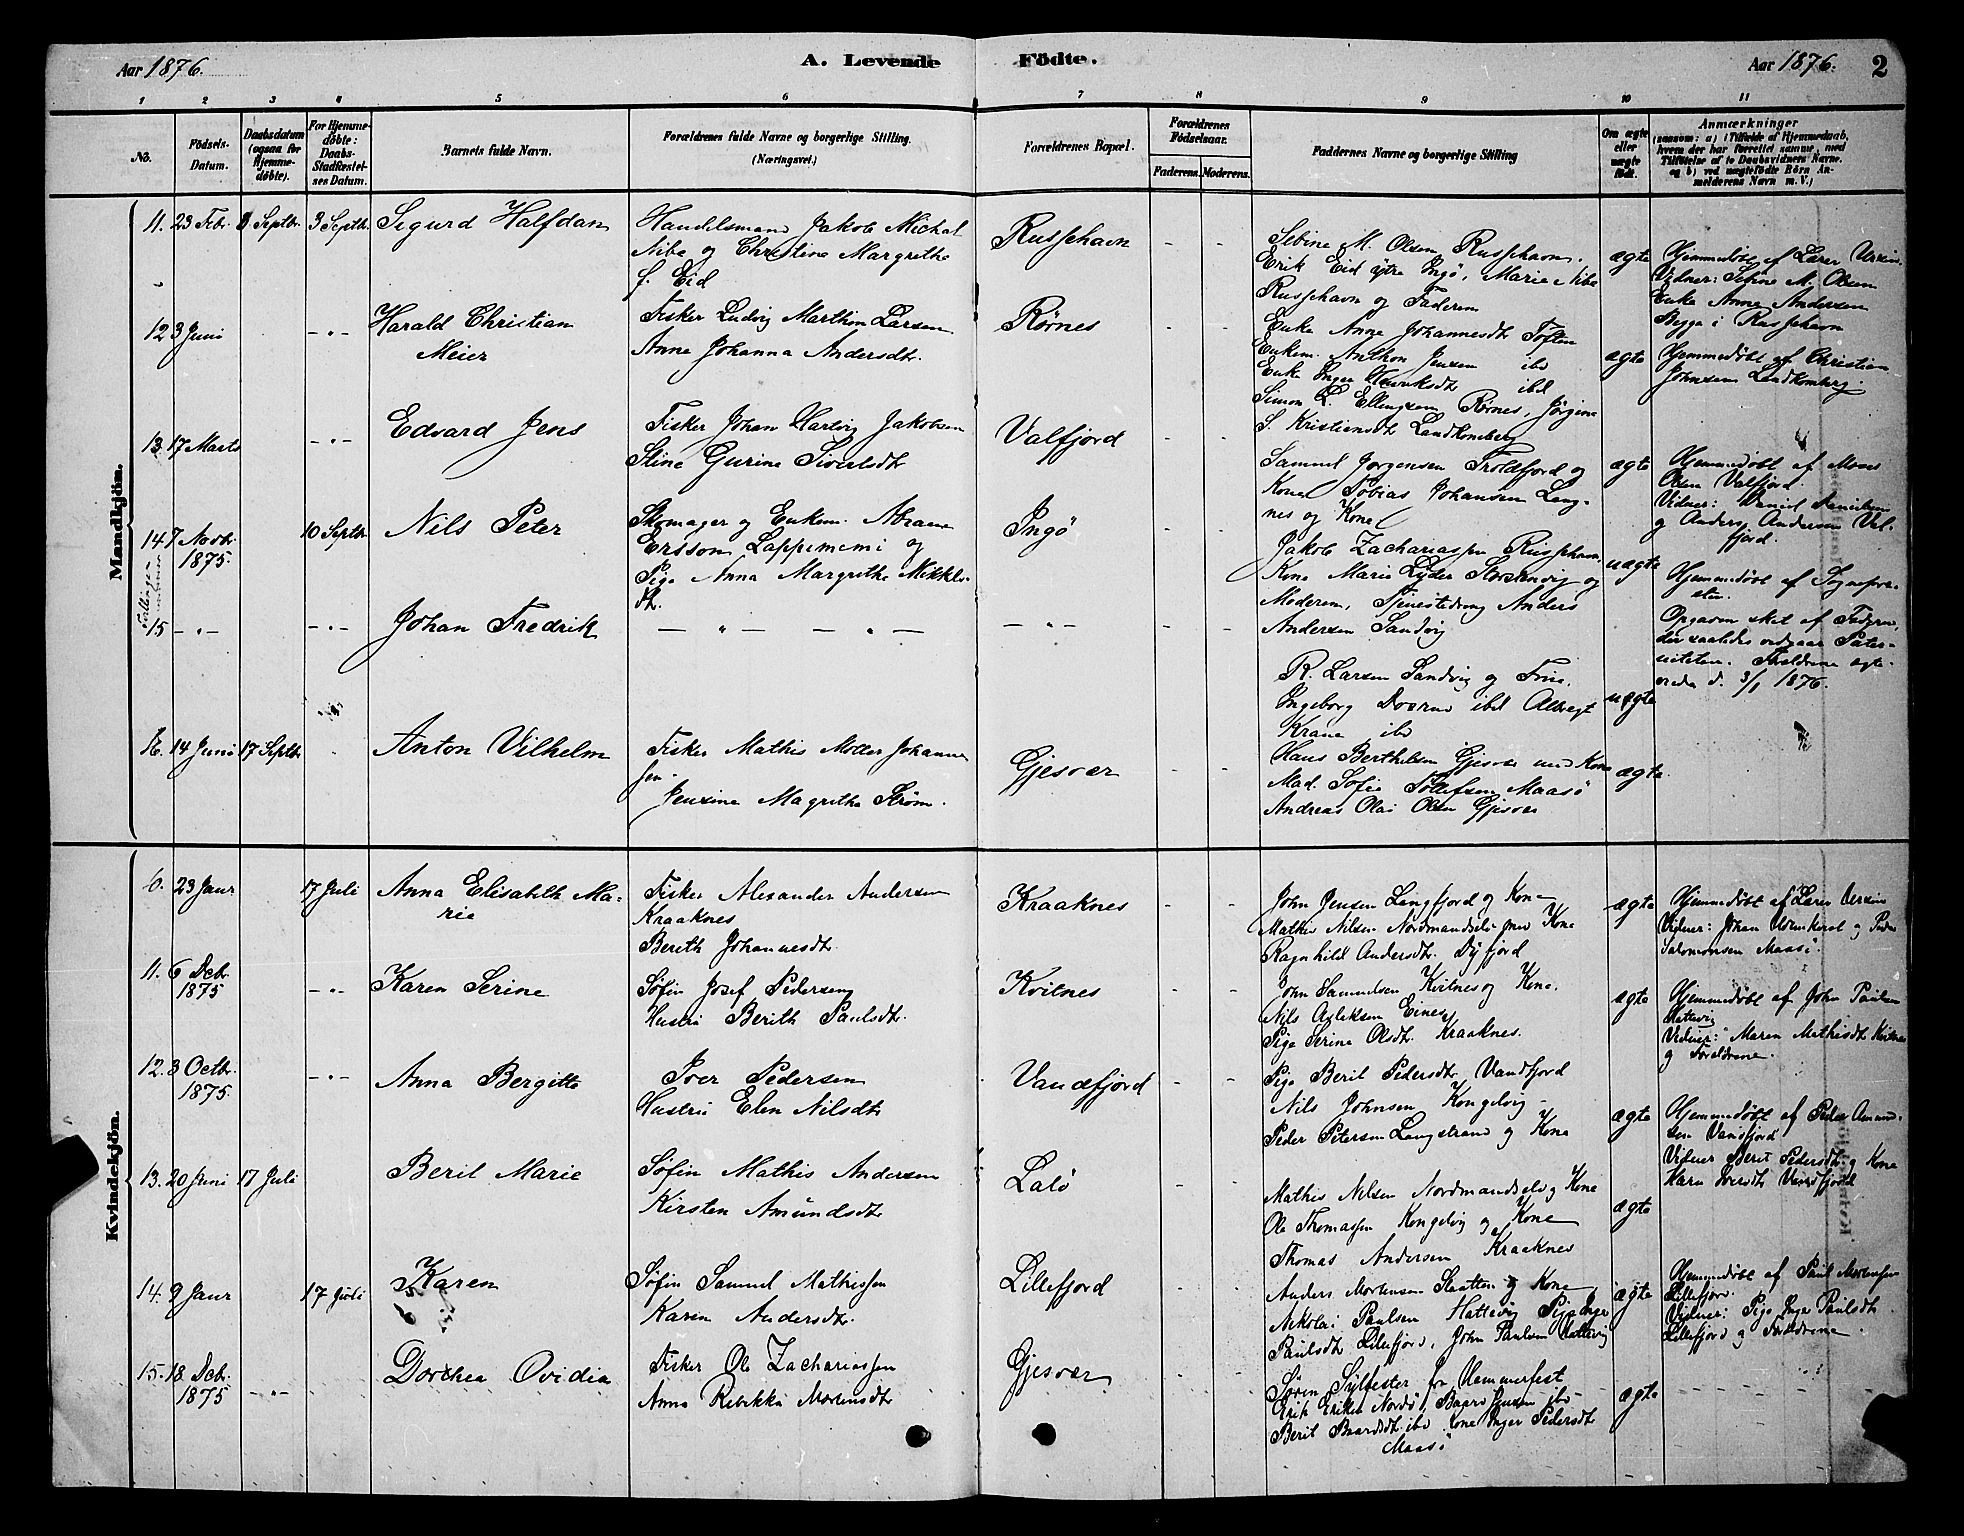 Aar 1876.
A. Levende Födte.
Aar 1876. 2
1 2 3 4 5 6 7 8 9 10 11
No.
Födsels-
Datum.
Daabsdatum
(ogsaa for
Hjemme-
döbte).
For Hjemme-
döbte:
Daabs-
Stadfæstel-
ses Datum.
Barnets fulde Navn.
Forældrenes fulde Navne og borgerlige Stilling.
(Næringsvei.)
Forældrenes Bopæl.
Forældrenes
Födselsaar.
Faderens. Moderens.
Faddernes Navne og borgerlige Stilling
Om ægte
eller
uægte
født.
Anmærkninger
(saasom: a) i Tilfælde af Hjemmedaab,
hvem der har forrettet samme, med
Tilföielse af to Daabsvidners Navne.
og b) ved uægtefödte Börn An-
melderens Navn m. V.)
Mandkjön.
11. 23 Febr. 3 Septbr. 3 Septbr. Sigurd Halfdan
Handelsmand Jakob Michal
Niba og Christine Margrethe
f. Eid
Russehavn - -
Sebine M. Olsen Russehavn,
Erik Eid ytre Ingö, Marie Niba
Russehavn og Faderen
ægte
Hjemmedöbt af Lærer
Vidner: Sebine M. Olsen
Enke Anne Andersen
Begge i Russehavn
12 3 Juni - " - Harald Christian
Meier
Fisker Ludvig Marthin Larsen
Anne Johanna Andersdt.
Rørnes - -
Enke Anne Johannesdt Toften
Enkem. Anthon Jensen ibd
Enke Inger Henriksdt ibd
Simon L. Ellingsen Rørnes, Jörgine
S. Kristiansdt Landkonsberg
ægte
Hjemmedöbt af Christian
Johnsen Landkonsberg.
13. 17 Marts - " - Edvard Jens
Fisker Johan Hartvig Jakobsen
Stine Gurine Sivertsdt
Valfjord - -
Samuel Jørgensen Troldfjord og
Kone Tobias Johansen Lang-
nes og Kone
ægte
Hjemmedöbt af Moses
Olsen Valfjord
Vidner: Daniel Danielsen
og Anders Andersen Val-
fjord.
14 7 Novbr.
1875. 10 Septbr. Nils Peter
Skomager og Enkem. Abram
Ersson Lappememi og
Pige Anna Margrethe Mikkels-
dt.
Ingö - -
Jakob Zachariassen Russehavn
Kone Marie Lyder og
Moderen, Tjenestedreng Anders
Andersen Sandvig
uægte
Hjemmedöbt af Sognepræ-
sten.
Tvillinger
15 - " - - " - Johan Fredrik
- " - - " - - " - - -
R. Larsen Sandvig og Frue.
Ingeborg ibd Albregt
Krane ibd
uægte
Opgaven sket af Faderen,
der saaledes vedgaar Pater-
niteten. Forældrene ægte-
viede d. 3/1 1876.
16. 14 Juni 17 Septbr. Anton Vilhelm
Fisker Mathis Møller Johannes-
sen.
Jensine Magrethe Strøm.
Gjesvær - -
Hans Berthelsen Gjesvær med Kone
Mad. Sofie Tollefsen Maasö
Andreas Olai Olsen Gjesvær
ægte.
Kvindekjön.
10. 23 Janr 17 Juli Anna Elisabeth Ma-
rie
Fisker Alexander Andersen
Kraaknes
Berith Johannesdt.
Kraaknes - -
John Jensen Langfjord og Kone
Mathis Nilsen Nordmandselv med Kone
Ragnhild Andersdt. Dyfjord
ægte
Hjemmedöbt af Lærer
Vidner: Johan og Peder
Salomonsen Maasö.
11. 6 Decbr.
1875 - " - Karen Serine
Søfin Josef Pedersen
Hustru Berith Paulsdt.
Kvitnes - -
John Samuelsen Kvitnes og Kone.
Nils Aslaksen Einesø
Pige Serina Olsdt. Kraaknes.
ægte
Hjemmedöbt af John Paulsen
Hattevig
Vidner: Maren Mathisdt Kvitnes
og Forældrene.
12. 3 Octbr.
1875. - " - Anna Bergitte
Iver Pedersen
Hustru Elen Nilsdt
Vandfjord - -
Pige Berit Pedersdt. Vandfjord
Nils Johnsen Kongelvig -
Peder Petersen Langstrand og Kone
ægte
Hjemmedöbt af Peder Amund-
sen Vandfjord
Vidner Berit Pedersdt og Kone
Karen Iversdt Vandfjord
13. 20 Juni 17 Juli Berit Marie
Søfin Mathis Andersen
Kirsten Amundsdt
Lalö - -
Mathis Nilsen Nordmandselv og Kone
Ole Thomassen Kongelvig og Kone
Thomas Andersen Kraaknes
ægte
14. 9 Janr 17 Juli Karen
Søfin Samuel Mathissen
Karen Andersdt.
Lillefjord - -
Anders Mortensen Slaatten og Kone
Nikolai Paulsen Hattevig Pige Inger
Paulsdt Lillefjord, John Paulsen Hattevig
ægte
Hjemmedöbt af Paul Mortensen
Lillefjord.
Vidner: Pige Inger Paulsdt.
Lillefjord og Forældrene
15. 18 Decbr.
1875 - " - Dorthea Ovidia
Fisker Ole Zachariassen
Anna Rebekka Mortensdt
Gjesvær
Sören Sylfester fra Hammerfest
Erik Eriksen Nordö, Baard Jensen ibd
Berit Baardsdt. ibd Kone Inger Pedersdt
Maasö
ægte